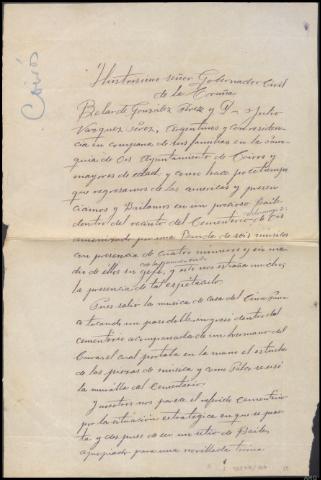 Coirós
Ilustrisimo señor Gobernador Civil
de la Coruña
González Pérez y D. Julio
Vazquez Pérez, Argentinos y con residen
cia en compañia de sus familias en la parro
quia de Ois Ayuntamiento de Coiros y
mayores de edad, y como hace poco tiempo
que regresamos de las americas y presen
ciamos y Bailamos en un precioso Baile
dentro del recinto del Cementerio de Ois
amenizado por una Banda de seis musicos
con presencia de cuatro números y en me
dio de ellos su gefe, y nos extraña mucho
la presencia de tal espetaculo.
Pues salio la musica de casa del Cura
tocando un pasodoble dentro del
cementerio acompañada de un hermano del
Cura el cual portaba en la mano el estuche
de las piezas de musica y
la muralla del Cementerio.
Y nosotros nos parece el referido Cementerio
por la situación estrategica en que se encuen
tra y despues de ser un sitio de Baile
apropiado para una novillada